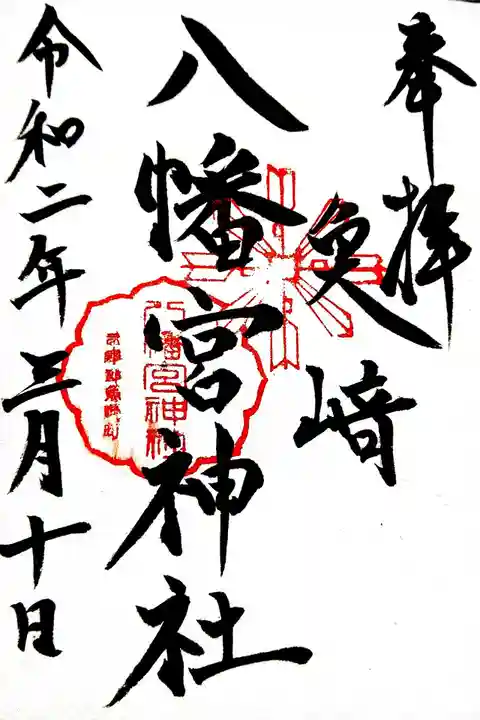 奉拝
魚崎
八幡宮神社
八幡宮神社
令和二年三月十日